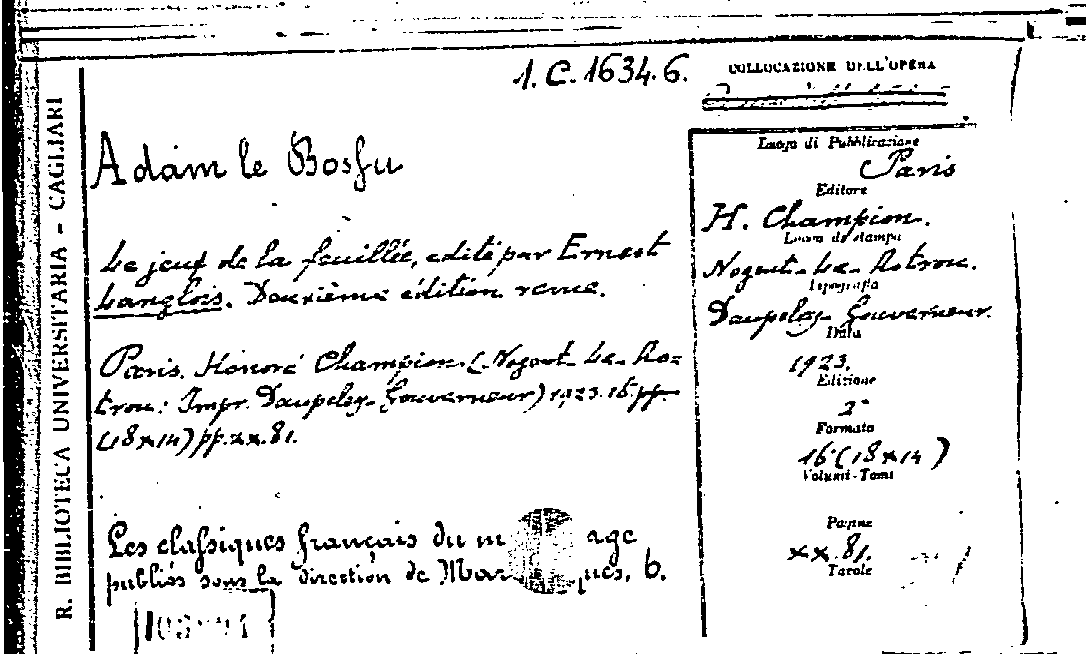 1.C.1634.6.
COLLOCAZIONE DELL'OPERA
R. BIBLIOTECA UNIVERSITARIA - CAGLIARI
Adam le Bossu
Le jeu de la feuillée, edité par Ernest
Langlois. Deuxième édition revue.
Paris. Honoré Champion. (Nogent-Le-Ro=
trou: Impr. Daupeley-Gouverneur) 1923. 16. pp.
(18x14) pp. xx. 81.
Les classiques français du m age
publiés sous la direction de Mar ques. 6.
Luogo di Pubblicazione
Paris
Editore
H. Champion.
Luogo di stampa
Nogent-Le-Rotrou.
Tipografia
Daupeley-Gouverneur.
Data
1923.
Edizione
2ª
Formato
16 (18x14)
Volumi-Tomi
Pagine
xx. 81.
Tavole